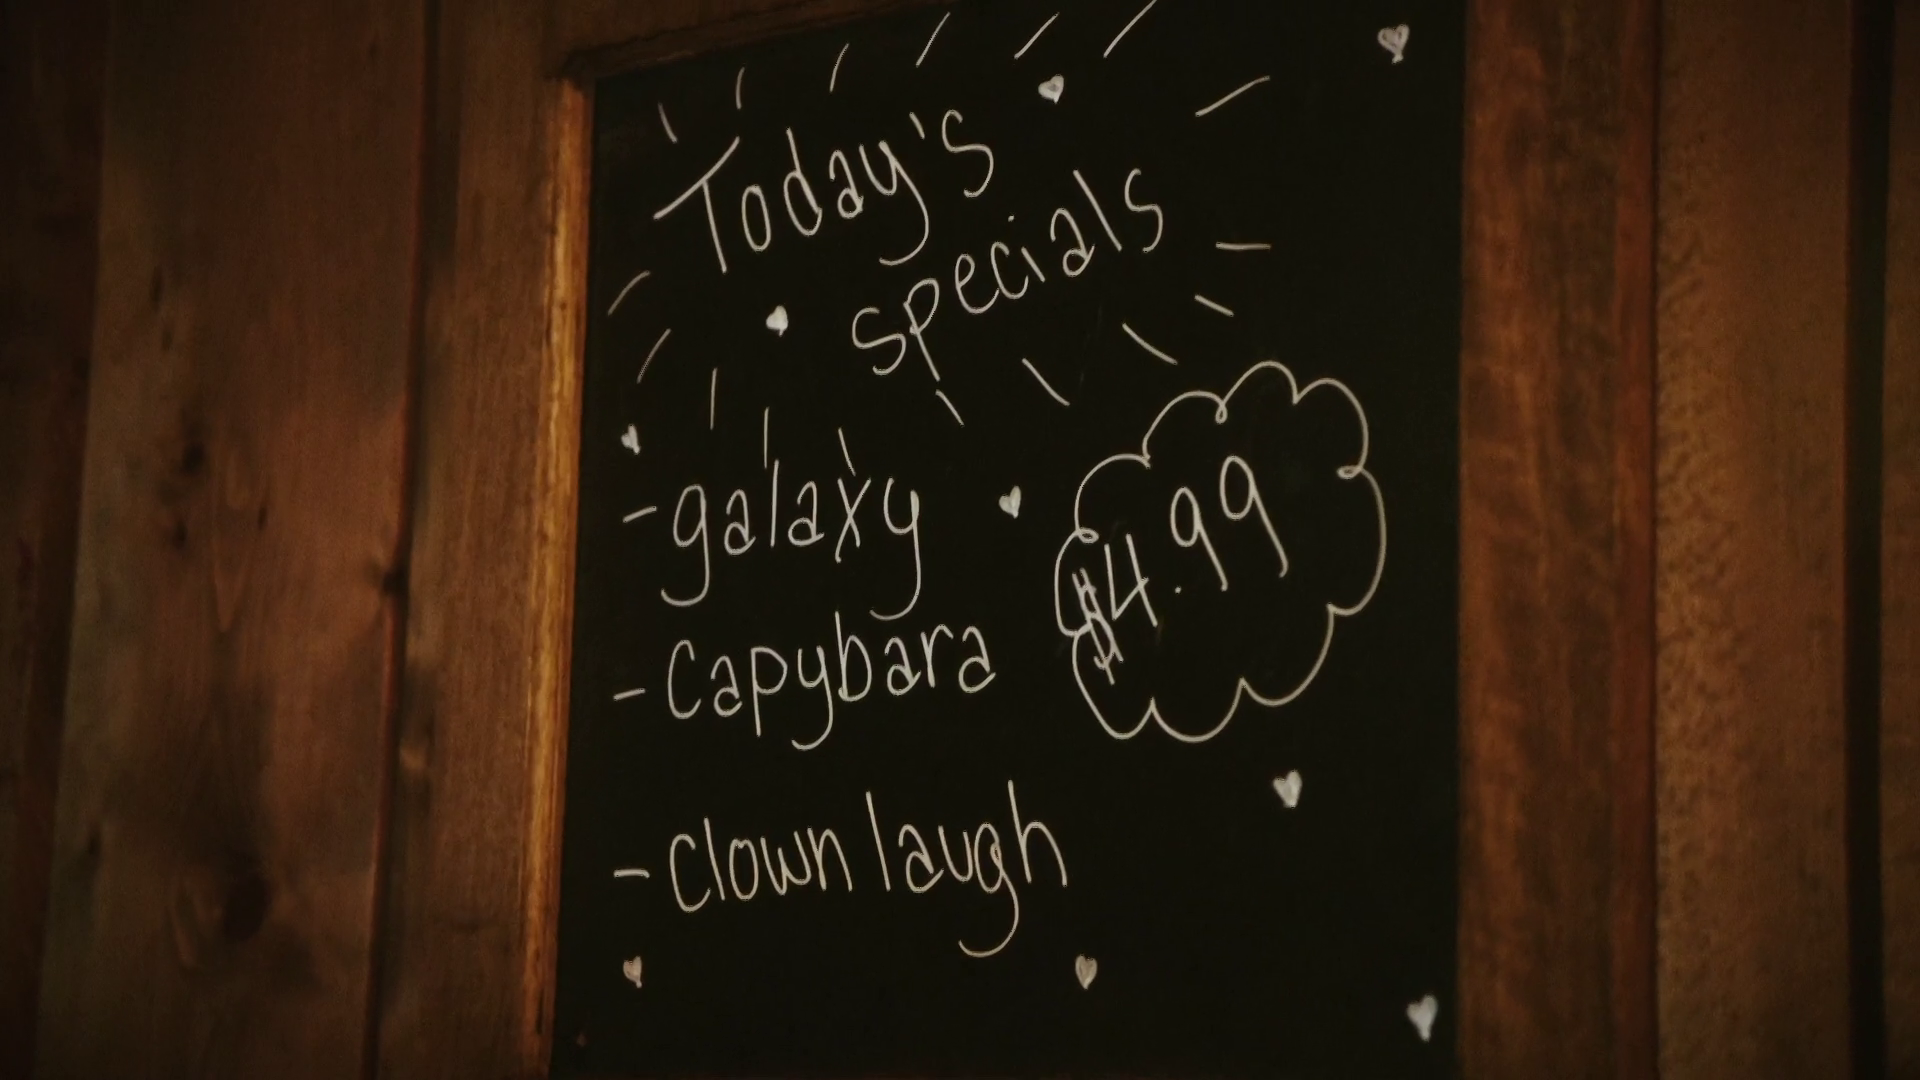 Today's
specials
- galaxy
$4.99
- Capybara
- Clown laugh